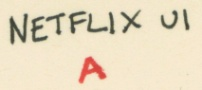 NETFLIX UI
A